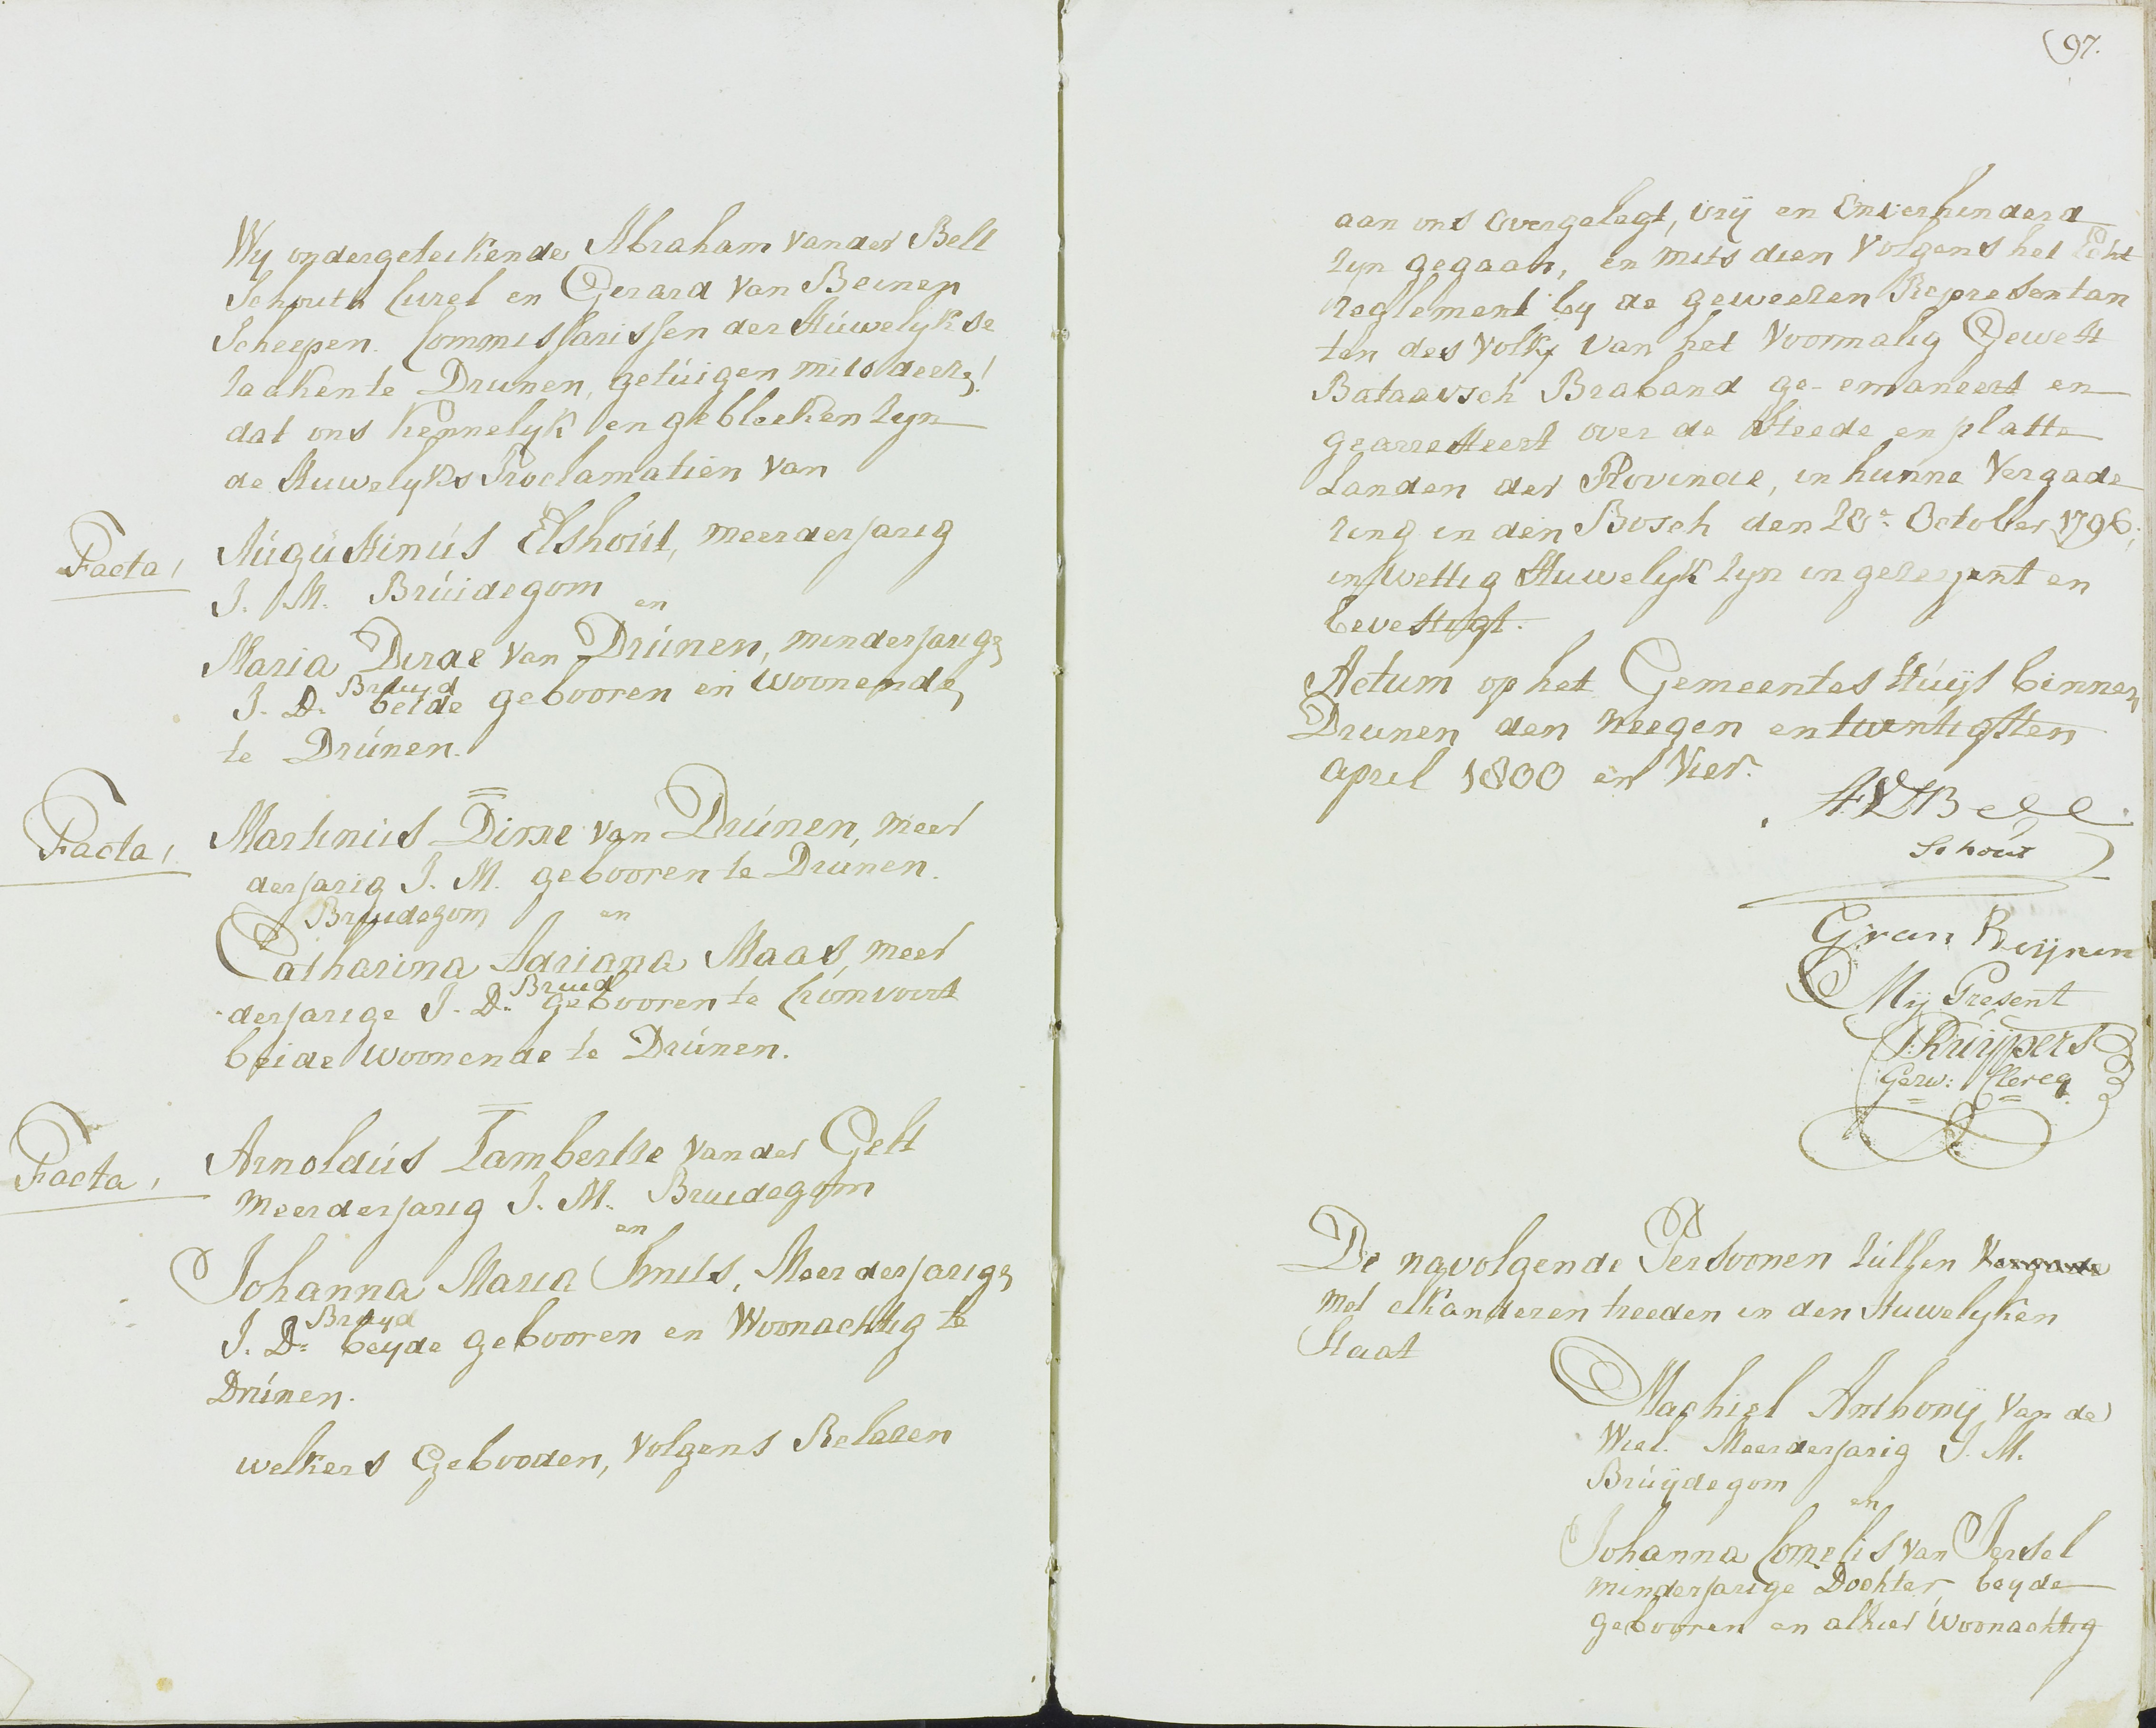 Wy ondergeteikende Abraham vander Bell
Schouth Civiel en Gerard van Beinen
Scheepen. Commissarissen der Húwelykse
Zaaken te Drunen, getúigen mits deeze!
dat ons kennelyk en gebleeken zyn
de Huwelyks Proclamatien van
Facta,
Aúgústinús Elshoút, meerderjarig
J. M. Brúidegom
en
Maria Dirse van Drúnen, minderjarige
Bruyd
J. D. beide gebooren en woonende
te Drúnen.
Facta,
Martinús Dirse van Drúnen, meer
derjarig J. M. gebooren te Drunen.
Bruidegom
en
Catharina Adriana Maas, meer
Bruid
derjarige J. D. gebooren te Cromvoort
beide woonende te Drúnen.
Facta,
Arnoldús Lambertse vander Gelt
meerderjarig J. M. Bruidegom
en
Johanna Maria Smits, Meerderjarige
Bruyd
J. D. beyde gebooren en Woonachtig te
Drúnen.
welkers Gebooden, volgens Relazen
97.
aan ons overgelegt, vrij en Onverhinderd
zyn gegaan, en mits dien volgens het Echt
reglement by de geweezen Representan
ten des volks van het voormalig Gewest
Bataavsch Braband ge-emaneert en
gearresteert over de Steede en platte
Landen der Provincie, in hunne Vergade
ring in den Bosch den 28e October 1796;
in wettig Huwelyk zyn ingezegent en
bevestigt.
Actum op het Gemeentes Húijs binnen
Drunen den neegen entwintigsten
april 1800 en Vier.
AVDBell
Schout
G van Beijnen
Mij Present
Kuijpers
Gezw: Clercq
De navolgende Persoonen zúllen
met elkanderen treeden in den Huwelyken
Staat
Machiel Anthonij van de
Wiel. Meerderjarig J. M.
Brúijdegom
en
Johanna Cornelis van Iersel
minderjarige Dochter, beyde
gebooren en alhier Woonachtig